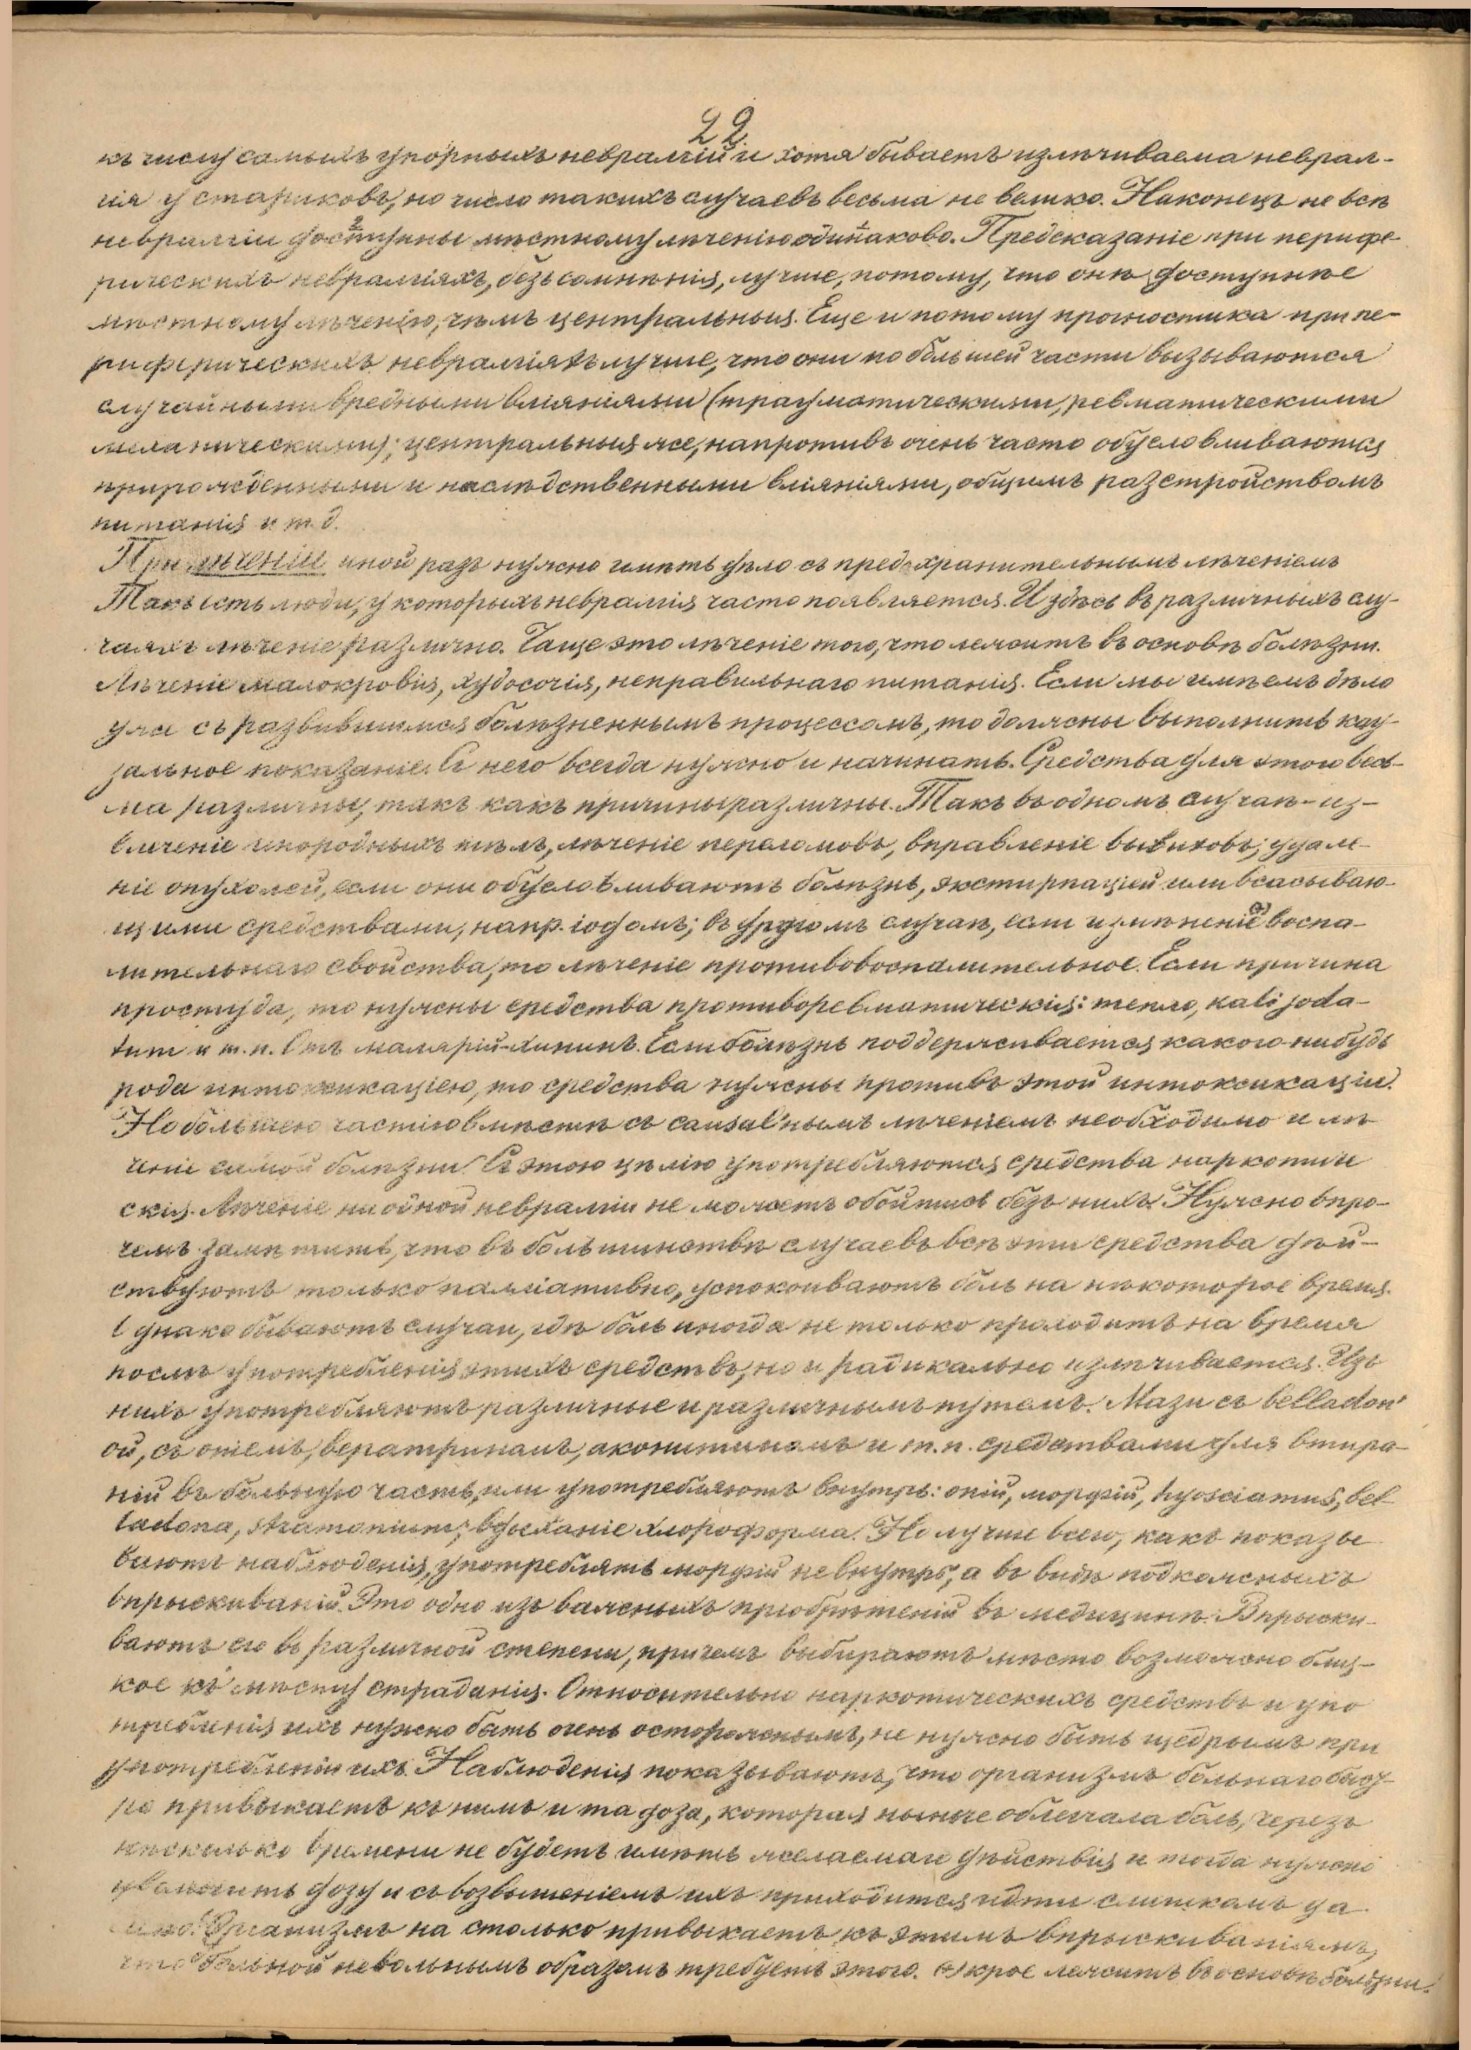 22
къ числу самыхъ упорныхъ невралгій и хотя бываетъ излѣчиваема неврал-
гія у стариковъ, но число такихъ случаевъ весьма не велико. Наконецъ не всѣ
невралгіи доступны мѣстному лѣченію одинаково. Предсказаніе при перифе
рическихъ невралгіяхъ, безъ сомнѣнія, лучше, потому, что онѣ доступнѣе
мѣстному лѣченію, чѣмъ центральныя. Еще и потому прогностика при пе-
риферическихъ невралгіяхъ лучше, что они по большей части вызываются
случайными вредными вліяніями (травматическими, ревматическими
механическими); центральныя же, напротивъ очень часто обусловливаются
прирожденными и наслѣдственными вліяніями, общимъ разстройствомъ
питанія и т. д.
При лѣченіи иной разъ нужно имѣть дѣло съ предохранительнымъ лѣченіемъ
Такъ есть люди, у которыхъ невралгія часто появляется. И здѣсь въ различныхъ слу-
чаяхъ лѣченіе различно. Чаще это лѣченіе того, что лежитъ въ основѣ болѣзни.
Лѣченіе малокровія, худосочія, неправильнаго питанія. Если мы имѣемъ дѣло
уже съ развившимся болѣзненнымъ процессомъ, то должны выполнить кау-
зальное показаніе. Съ него всегда нужно и начинать. Средства для этого весь-
ма различны, такъ какъ причины различны. Такъ въ одномъ случаѣ - из-
влеченіе инородныхъ тѣлъ, лѣченіе переломовъ, вправленіе вывиховъ; удале-
ніе опухолей, если они обусловливаютъ болѣзнь, экстирпаціей или всасываю-
щими средствами, напр. іодомъ; въ другомъ случаѣ, если измѣненіе воспа-
лительнаго свойства, то лѣченіе противовоспалительное. Если причина
простуда, то нужны средства противоревматическія: тепло, kali joda-
tum и т. п. Отъ малярій - хининъ. Если болѣзнь поддерживается какого-нибудь
рода интоксикаціею, то средства нужны противъ этой интоксикаціи.
Но большею частію вмѣстѣ съ causal'нымъ лѣченіемъ необходимо и лѣ
ченіе самой болѣзни. Съ этою цѣлію употребляются средства наркотиче
скія. Лѣченіе ни одной невралгіи не можетъ обойтись безъ нихъ. Нужно впро-
чемъ замѣтить, что въ большинствѣ случаевъ всѣ эти средства дѣй-
ствуютъ только палліативно, успокоиваютъ боль на нѣкоторое время.
Однако бываютъ случаи, гдѣ боль иногда не только проходитъ на время
послѣ употребленія этихъ средствъ, но и радикально излѣчивается. Изъ
нихъ употребляютъ различные и различнымъ путемъ. Мази съ belladon'
ой, съ опіемъ, вератриномъ, аконитиномъ и т. п. средствами для втира-
ній въ больную часть, или употребляютъ внутрь: опій, морфій, hyosciamus, bel
ladona, stramonium; вдыханіе хлороформа. Но лучше всего, какъ показы
ваютъ наблюденія, употреблять морфій не внутрь, а въ видѣ подкожныхъ
впрыскиваній. Это одно изъ важныхъ пріобрѣтеній въ медицинѣ. Впрыски-
ваютъ его въ различной степени, причемъ выбираютъ мѣсто возможно близ-
кое къ мѣсту страданія. Относительно наркотическихъ средствъ и упо
требленія ихъ нужно быть очень осторожнымъ, не нужно быть щедрымъ при
употребленіи ихъ. Наблюденія показываютъ, что организмъ больнаго быст-
ро привыкаетъ къ нимъ и та доза, которая нынче облегчала боль, черезъ
нѣсколько времени не будетъ имѣть желаемаго дѣйствія и тогда нужно
увеличить дозу и съ возвышеніемъ ихъ приходится идти слишкомъ да
леко. Организмъ на столько привыкаетъ къ этимъ впрыскиваніямъ,
что больной невольнымъ образомъ требуетъ этого. крое лежитъ въ основѣ болѣзни.